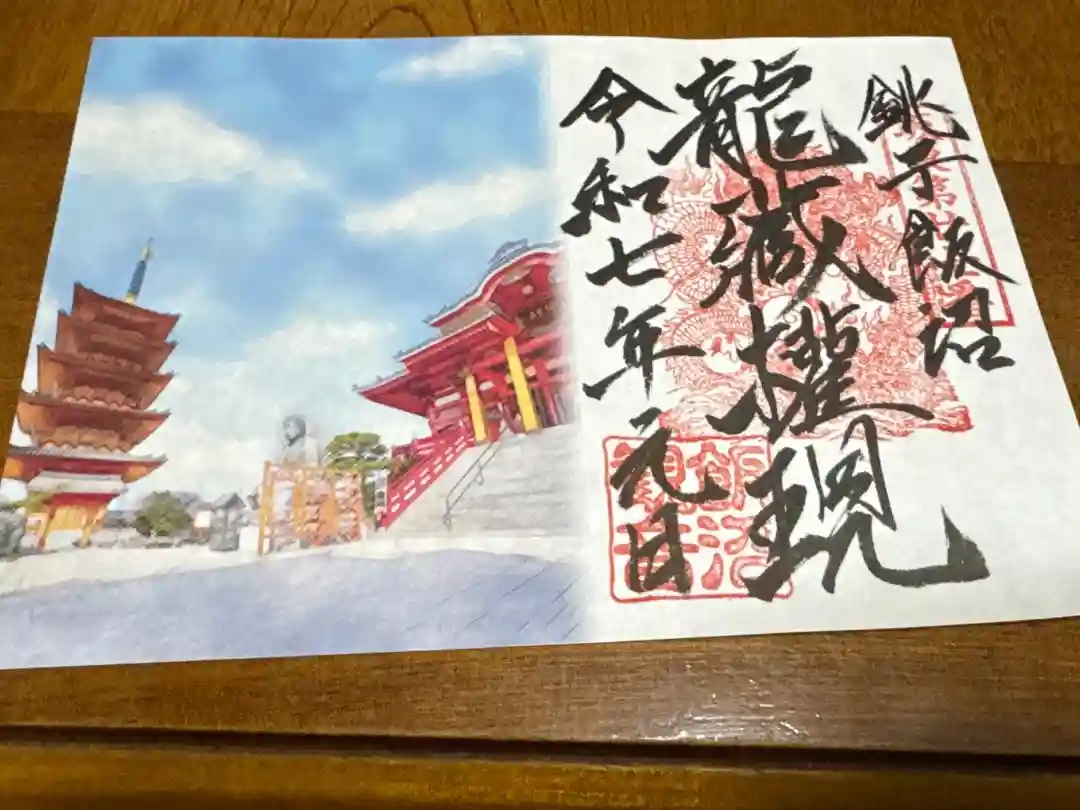 銚子飯沼
龍蔵権現
令和七年元日
飯沼観音